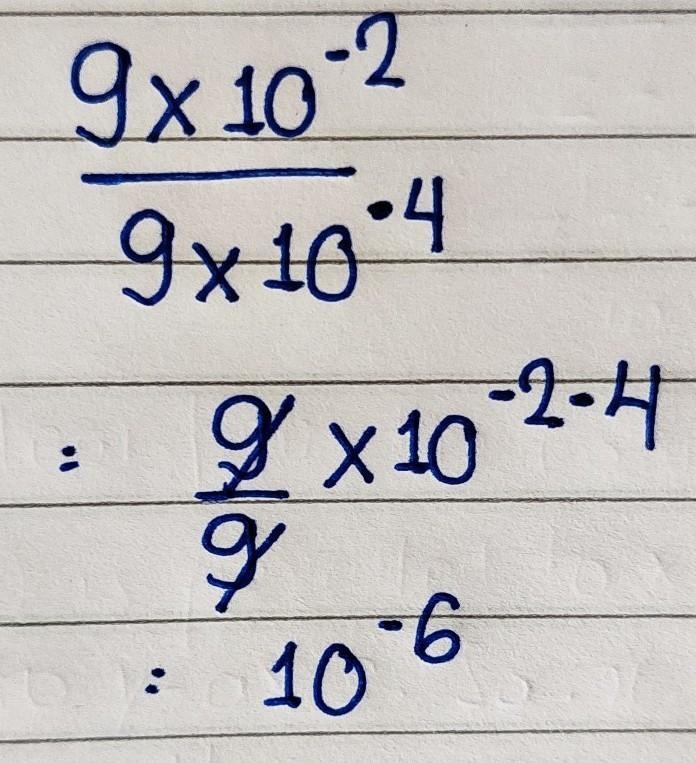 9 x 10⁻²
9 x 10⁻⁴
= 9 x 10⁻²⁻⁴
9
= 10⁻⁶